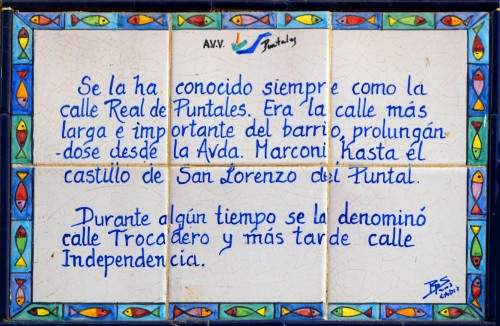 A.V.V. Puntales
Se la ha conocido siempre como la
calle Real de Puntales. Era la calle más
larga e importante del barrio, prolungán
-dose desde la Avda. Marconi hasta el
castillo de San Lorenzo del Puntal.
Durante algún tiempo se la denominó
calle Trocadero y más tarde calle
Independencia.
CADIZ